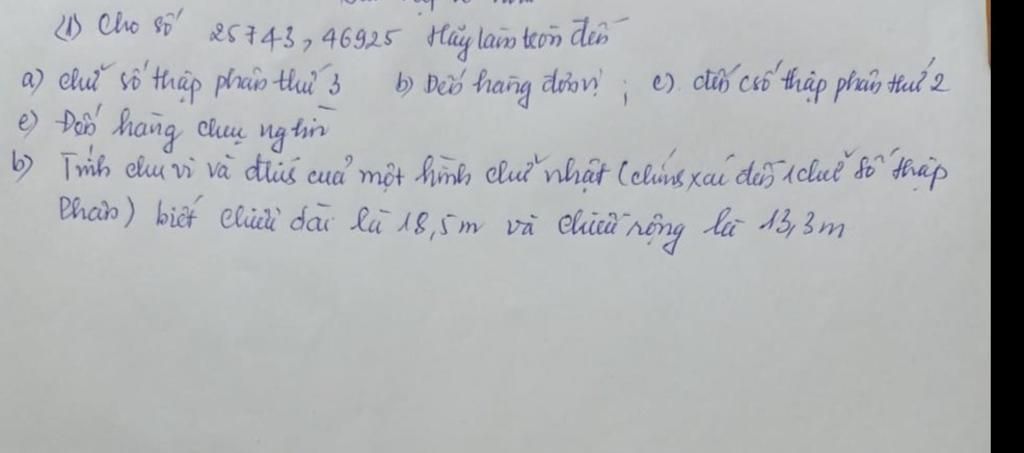 (1) Cho số 25743,46925 Hãy làm tròn đến
a) chữ số thập phân thứ 3 b) Đến hàng đơn vị ; c) đến csố thập phân thứ 2
e) Đến hàng chục nghìn
b) Tính chu vi và dtích của một hình chữ nhật (chính xác đến 1 chữ số thập
phân) biết chiều dài là 18,5m và chiều rộng là 13,3m